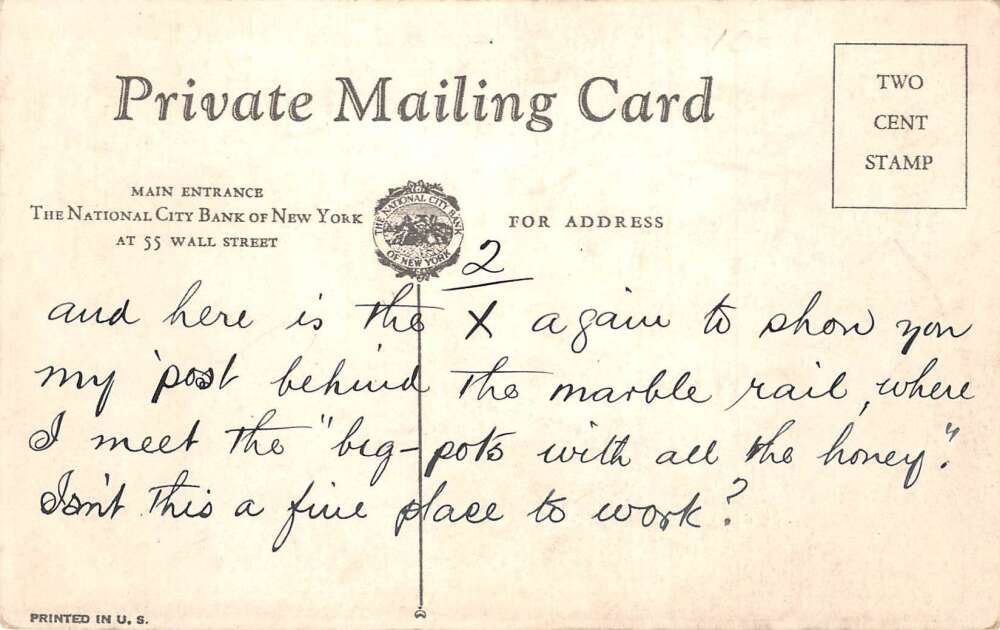 Private Mailing Card
TWO
CENT
STAMP
MAIN ENTRANCE
THE NATIONAL CITY BANK OF NEW YORK
AT 55 WALL STREET
THE NATIONAL CITY BANK
OF NEW YORK
FOR ADDRESS
2
and here is the X again to show you
my 'post behind the marble rail, where
I meet the "big-pots with all the honey".
Isn't this a fine place to work?
PRINTED IN U. S.